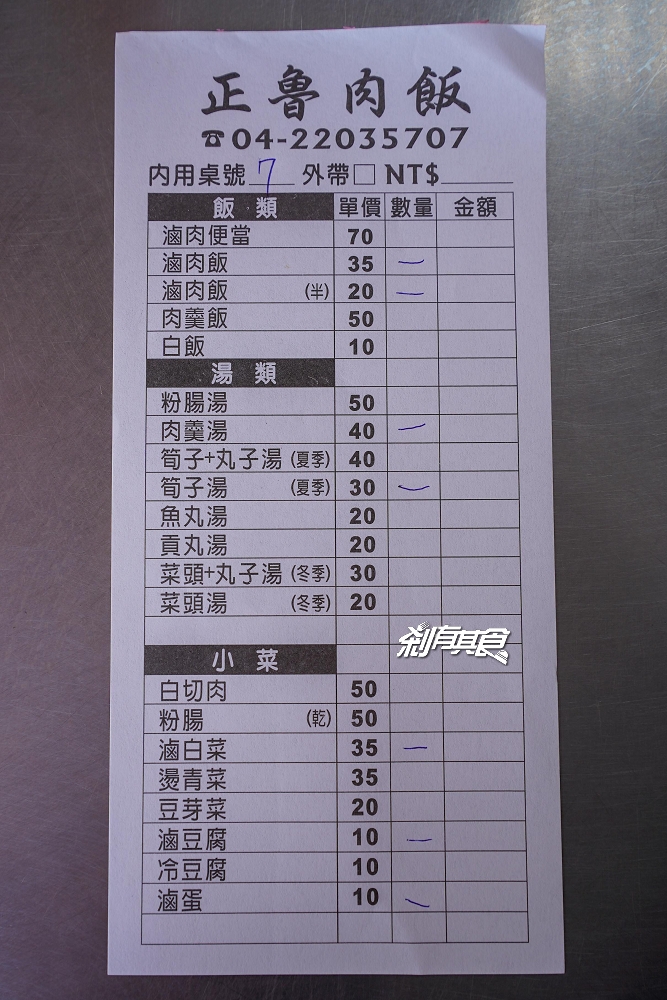 正魯肉飯
☎04-22035707
內用桌號 7 外帶□ NT$
飯類 單價 數量 金額
滷肉便當 70
滷肉飯 35 一
滷肉飯 (半) 20 一
肉羹飯 50
白飯 10
湯類
粉腸湯 50
肉羹湯 40 一
筍子+丸子湯 (夏季) 40
筍子湯 (夏季) 30 一
魚丸湯 20
貢丸湯 20
菜頭+丸子湯 (冬季) 30
菜頭湯 (冬季) 20
剎有其食
小菜
白切肉 50
粉腸 (乾) 50
滷白菜 35 一
燙青菜 35
豆芽菜 20
滷豆腐 10 一
冷豆腐 10
滷蛋 10 一